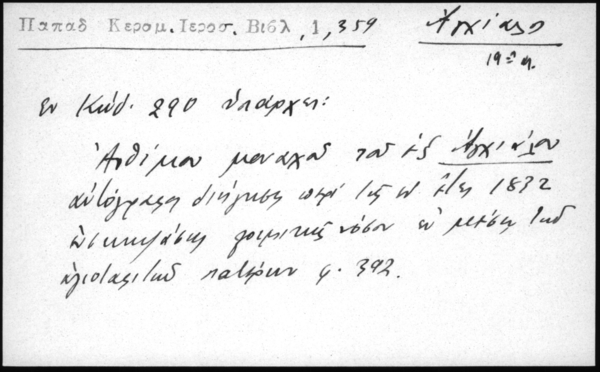 Παπαδ Κεραμ. Ιεροσ. Βιβλ , 1 , 359
Ἀγχίαλο
19ος αἰ.
εν Κώδ. 290 ὑπάρχει:
Ἀνθίμου μοναχοῦ τοῦ ἐξ Ἀγχιάλου
αὐτόγραφος διήγησις περὶ τῆς ἐν ἔτει 1832
ἐπισκηψάσης νόσου ἐν μέσῳ τοῦ
πατέρων φ. 392.